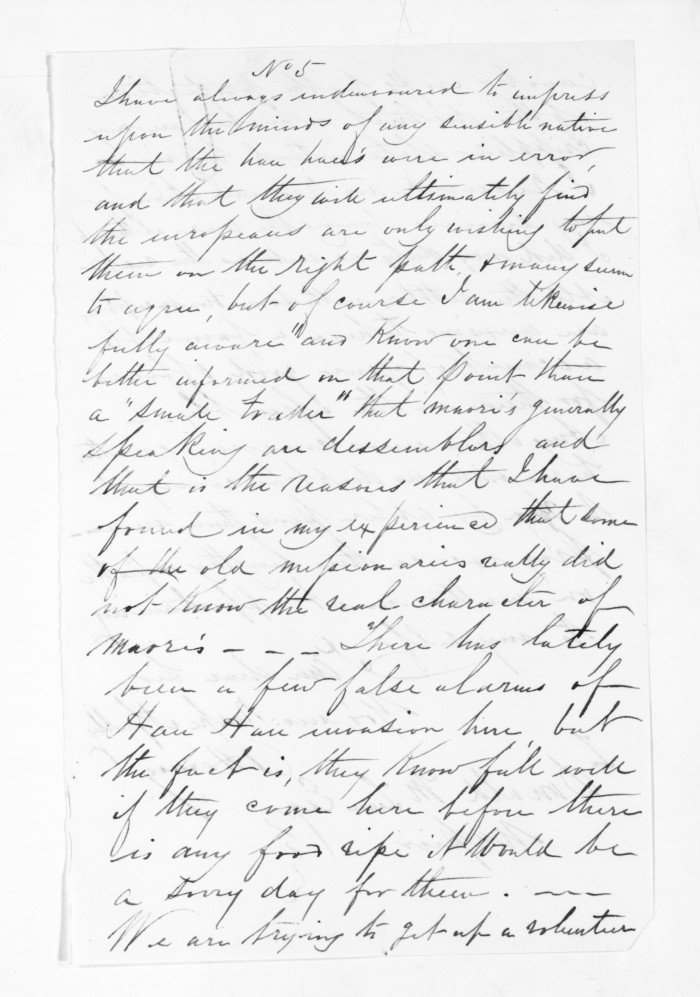 No 5
I have always endeavoured to impress
upon the minds of any sensible native
that the hau hau's were in error,
and that they will ultimately find
the europeans are only wishing to put
them on the right path, & many seem
to agree, but of course I am likewise
fully aware "and know one can be
better informed on that point than
a "smale trader" that maori's generally
speaking are dessemblers and
that is the reasons that I have
found in my experience that some
of the old missionaries really did
not know the real character of
maori's - - - There has lately
been a few false alarms of
Hau Hau invasion here, but
the fact is, they know full well
if they come here before there
is any food ripe it would be
a sorry day for them. — —
We are trying to get up a volunteer